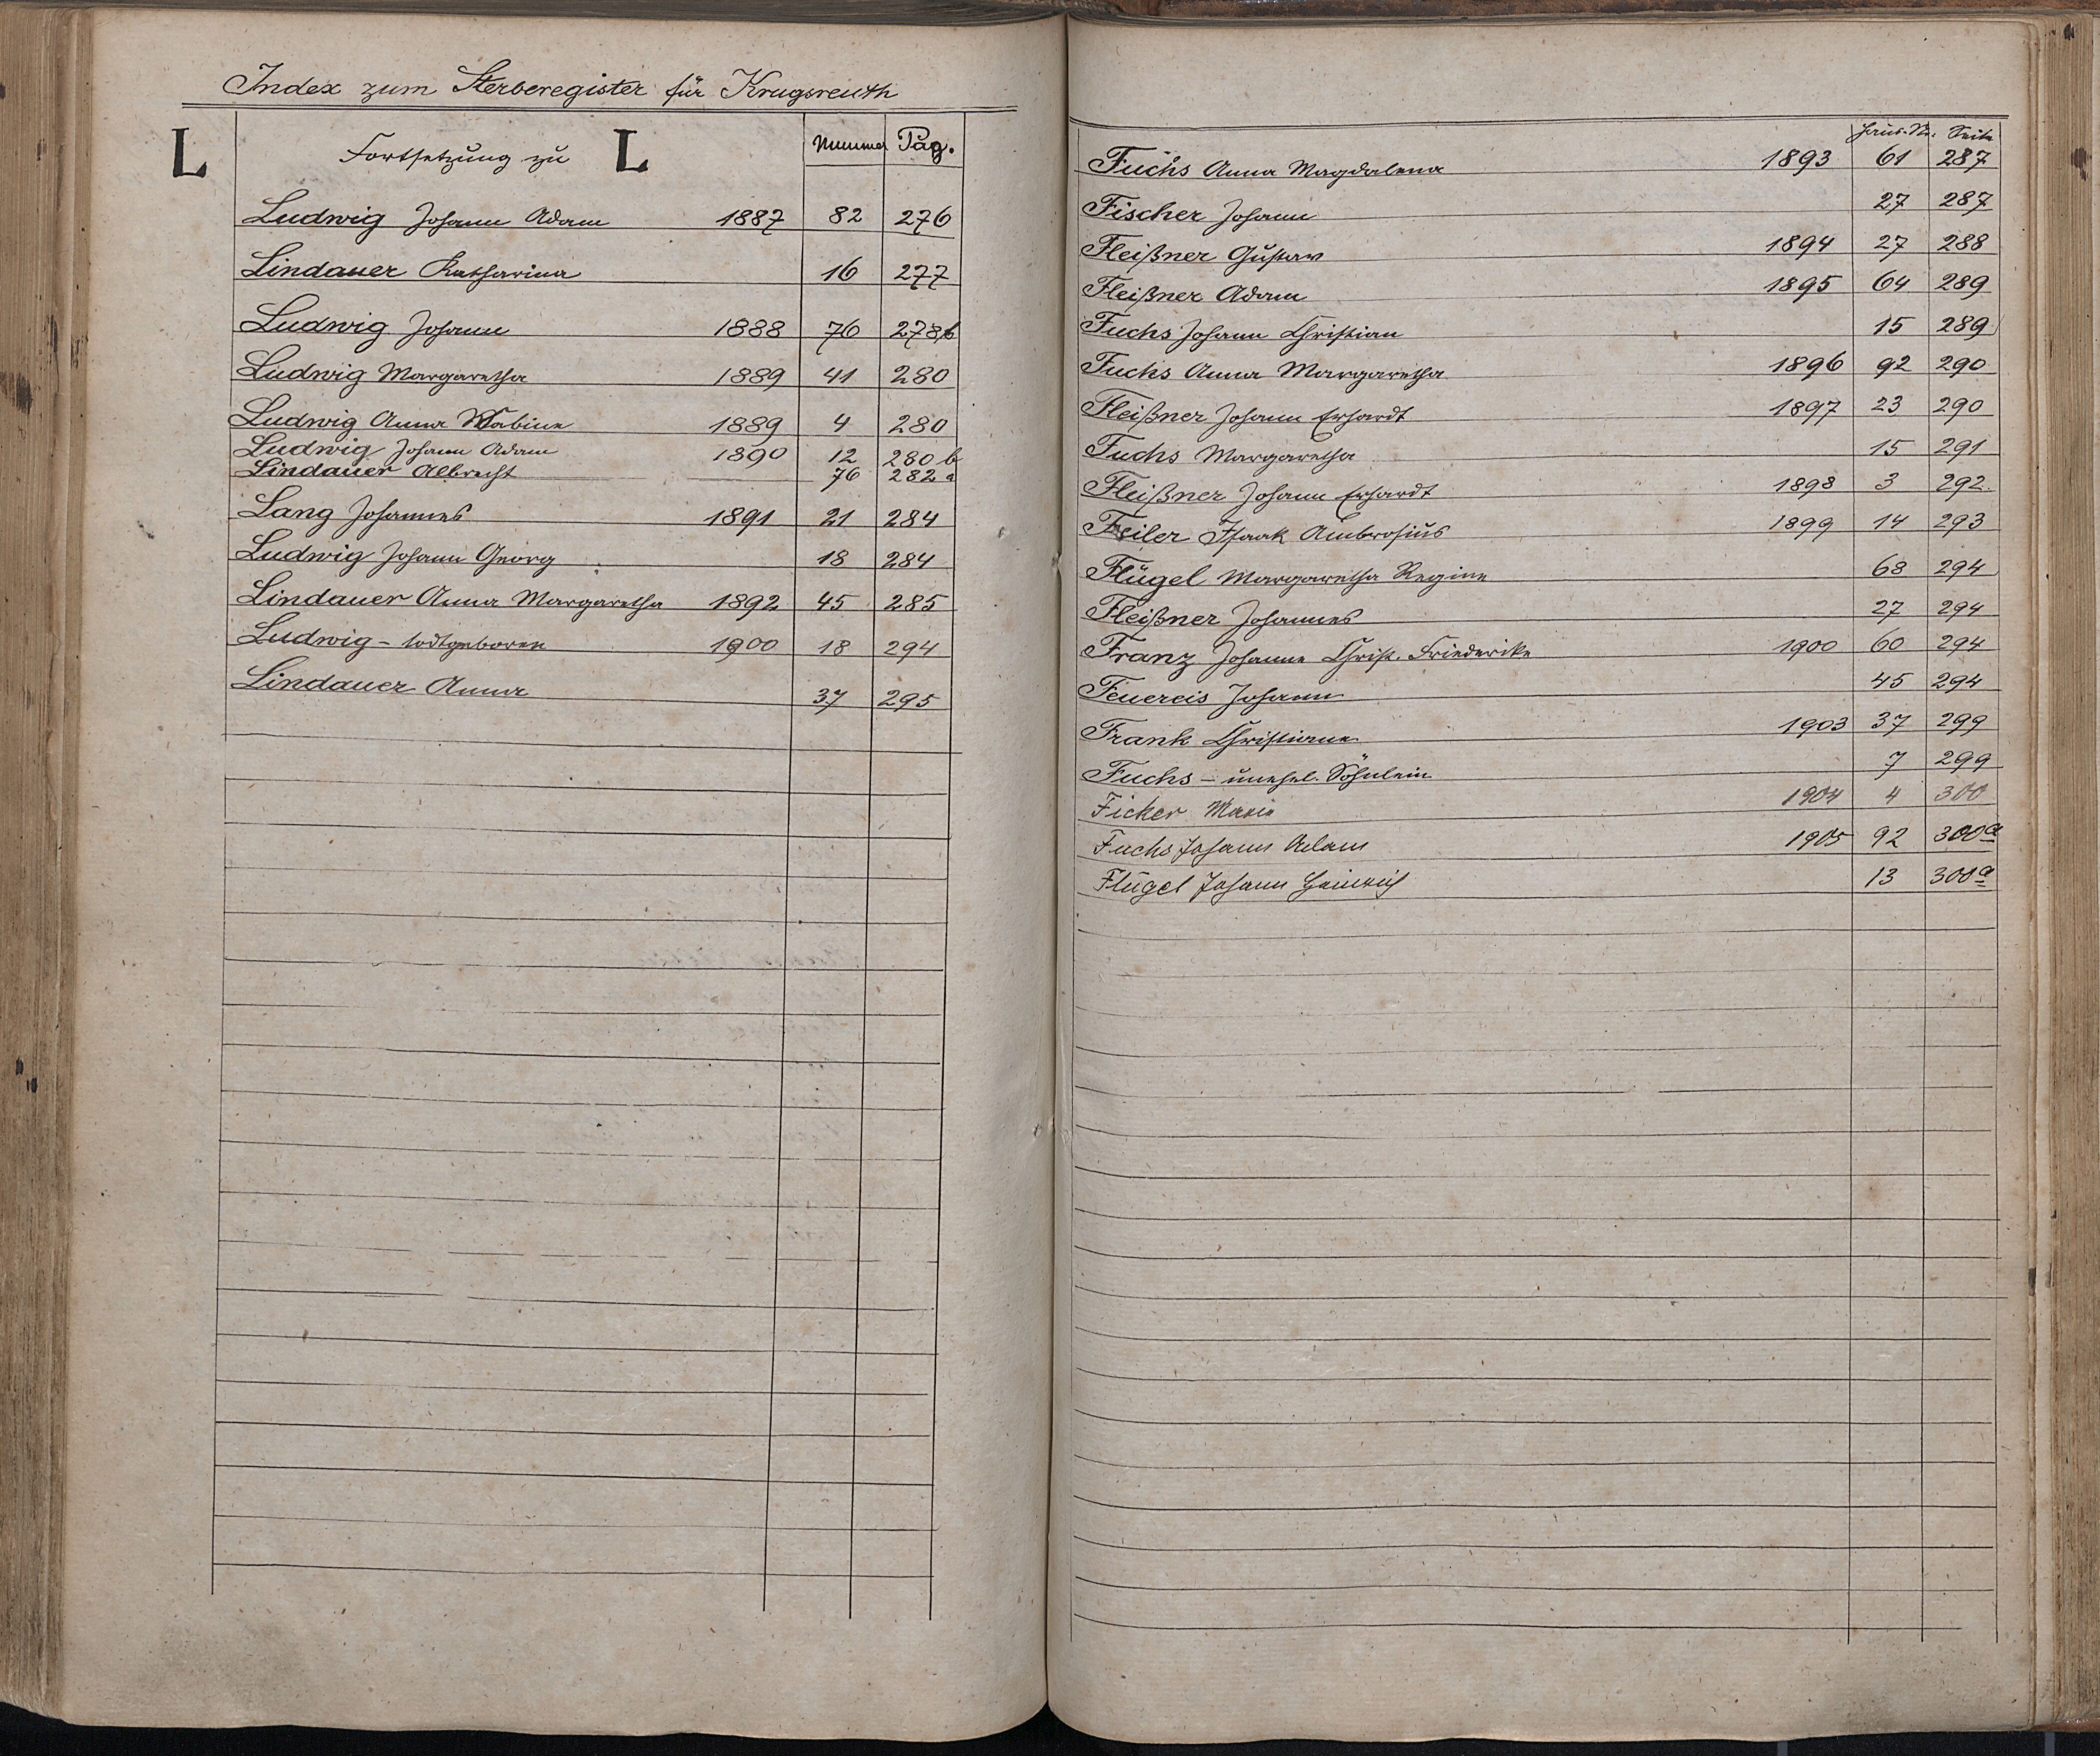 Index zum Sterberegister für Krugsreuth
L Fortsetzung zu L Nummer Pag.
Ludwig Johann Adam 1887 82 276
Lindauer Katharina 16 277
Ludwig Johann 1888 76 278b
Ludwig Margaretha 1889 41 280
Ludwig Anna Sabine 1889 4 280
Ludwig Johann Adam 1890 12 280b
Lindauer Albrecht 76 282a
Lang Johannes 1891 21 284
Ludwig Johann Georg 18 284
Lindauer Anna Margaretha 1892 45 285
Ludwig - todtgeboren 1900 18 294
Lindauer Anna 37 295
Haus-Nr. Seite
Fuchs Anna Magdalena 1893 61 287
Fischer Johann 27 287
Fleißner Gustav 1894 27 288
Fleißner Adam 1895 64 289
Fuchs Johann Christian 15 289
Fuchs Anna Margaretha 1896 92 290
Fleißner Johann Erhardt 1897 23 290
Fuchs Margaretha 15 291
Fleißner Johann Erhardt 1898 3 292.
Feiler Isaak Ambrosius 1899 14 293
Flügel Margaretha Regine 68 294
Fleißner Johannes 27 294
Franz Johanne Christ. Friederike 1900 60 294
Feuereis Johann 45 294
Frank Christiane 1903 37 299
Fuchs - unehel. Söhnlein 7 299
Ficker Maria 1904 4 300
Fuchs Johann Adam 1905 92 300a
Flügel Johann Heinrich 13 300a